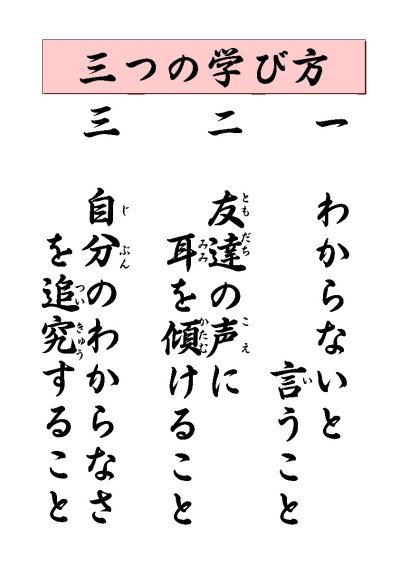 三つの学び方
一 わからないと
言うこと
二 友達の声に
耳を傾けること
三 自分のわからなさ
を追究すること